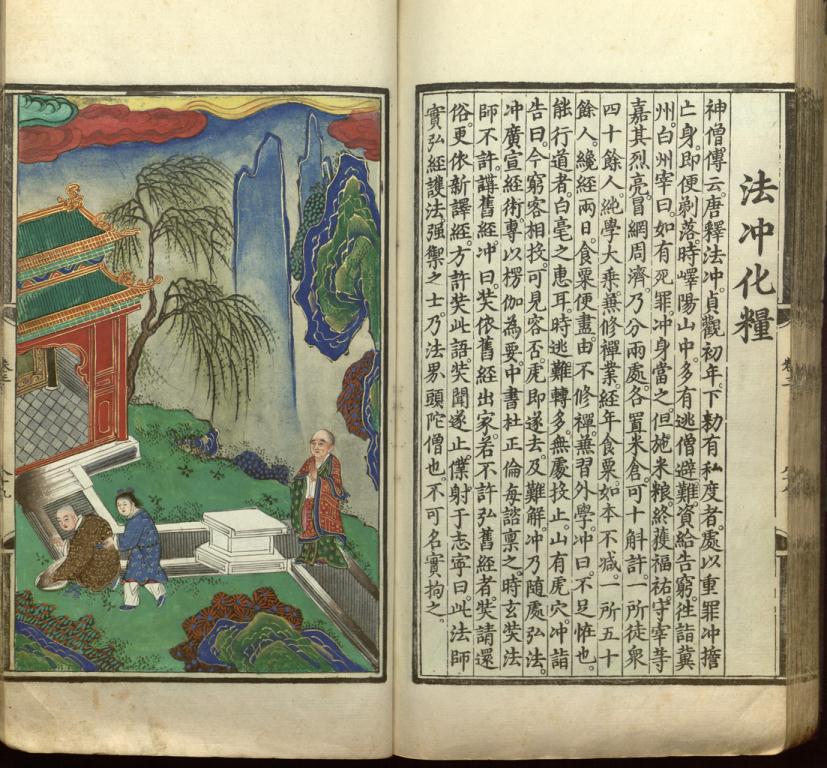 法冲化糧
神僧傳云。唐釋法冲。貞觀初年。下勑有私度者。處以重罪。冲擔
亡身。即便剃落。時嶧陽山中。多有逃僧避難。資給告窮。徃詣冀
州。白州宰曰。如有死罪。冲身當之。但施米粮。終獲福祐。守宰等
嘉其烈亮。冒網周濟。乃分兩處。各置米倉。可十斛許。一所徒衆
四十餘人。純學大乘。蕪修禪業。經年食粟。如本不减。一所五十
餘人。纔經兩日。食粟便盡。由不修禪。蕪習外學。冲曰。不足恠也。
能行道者。白毫之惠耳。時逃難轉多。無處投止。山有虎穴。冲詣
告曰。今窮客相投。可見容否。虎即遂去。及難解。冲乃隨處弘法。
冲廣宣經術。專以楞伽為要。中書杜正倫。每諮稟之。時玄奘法
師不許講舊經。冲曰。奘依舊經出家。若不許弘舊經者。奘請還
俗。更依新譯經。方許奘此語。奘聞遂止。僕射于志寧曰。此法師
實弘經護法。强禦之士。乃法界頭陀僧也。不可名實拘之。
卷三